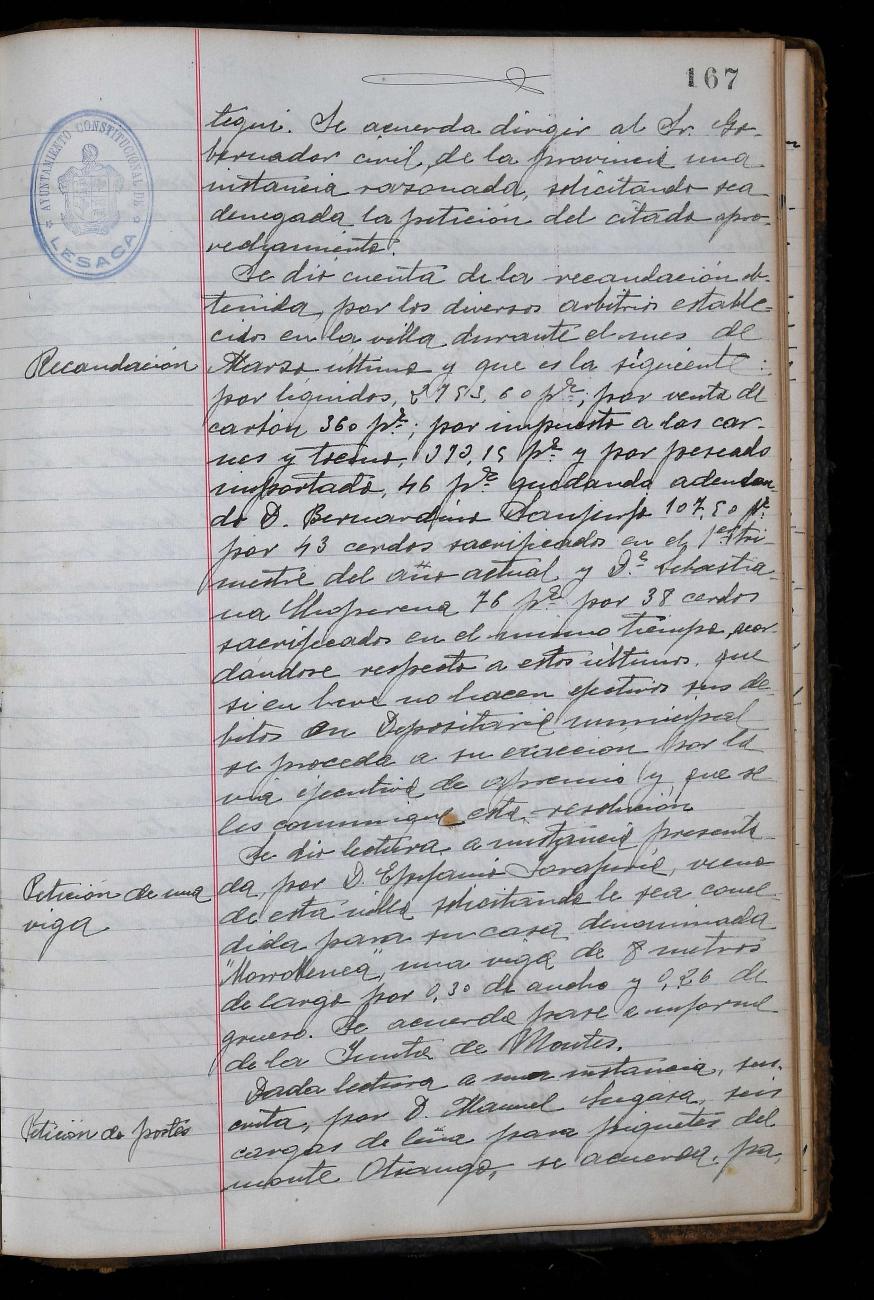 167
AYUNTAMIENTO CONSTITUCIONAL DE
LESACA
tegui. Se acuerda dirigir al Sr. Go-
bernador civil de la provincia una
instancia razonada, solicitando sea
denegada la petición del citado apro-
vechamiento.
Se dió cuenta de la recaudación ob-
tenida, por los diversos arbitrios estable-
cidos en la villa durante el mes de
Recaudación
Marzo último y que es la siguiente:
por líquidos, 2753,60 pts; por venta de
carbón 360 pts; por impuesto a las car-
nes y tocino, 373,15 pts y por pescado
importado, 46 pts quedando adeudan-
do D. Bernardino Sanjurjo 107,50 pts
por 43 cerdos sacrificados en el 1er tri-
mestre del año actual y Dª Sebastia-
na 76 pts por 38 cerdos
sacrificados en el mismo tiempo, acor-
dándose respecto a estos últimos, que
si en breve no hacen efectivos sus dé-
bitos en Depositaría municipal
se proceda a su exacción por la
vía ejecutiva de apremio y que se
les comunique esta resolución
Se dió lectura a instancia presenta-
Petición de una
viga
da, por D. Epifanio, vecino
de esta villa solicitando le sea conce-
dida para su casa denominada
una viga de 8 metros
de largo por 0,30 de ancho y 0,26 de
grueso. Se acuerda pase a informe
de la Junta de Montes.
Dada lectura a una instancia, sus-
Petición de postes
crita, por D. Manuel Lugasa, seis
cargas de leña para piquetes del
monte Otsango, se acuerda, pa-